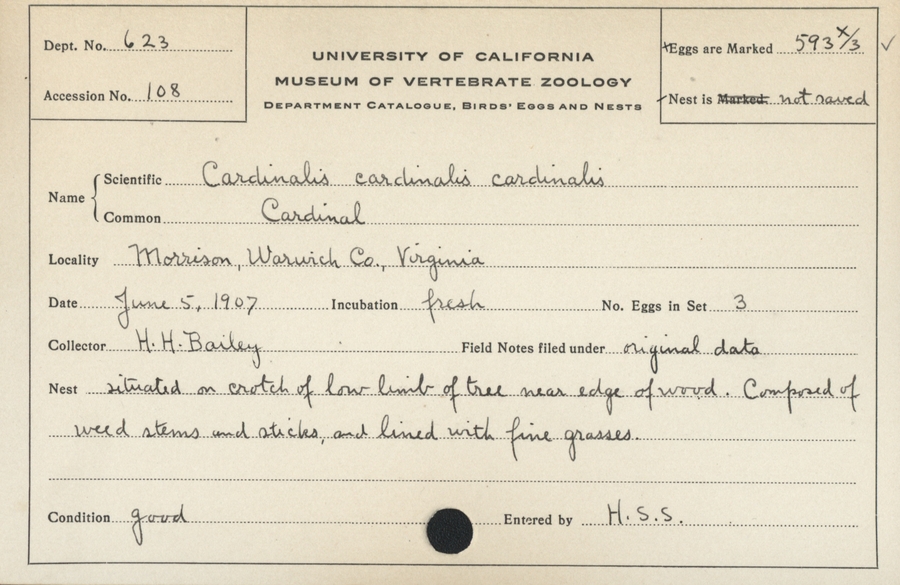 Dept. No. 623
Accession No. 108
UNIVERSITY OF CALIFORNIA
MUSEUM OF VERTEBRATE ZOOLOGY
DEPARTMENT CATALOGUE, BIRDS' EGGS AND NESTS
Eggs are Marked 593 x/3 ✓
Nest is Marked not saved
Name { Scientific Cardinalis cardinalis cardinalis
Common Cardinal
Locality Morrison, Warwich Co., Virginia
Date June 5, 1907 Incubation fresh No. Eggs in Set 3
Collector H. H. Bailey Field Notes filed under original data
Nest situated on crotch of low limb of tree near edge of wood. Composed of
weed stems and sticks, and lined with fine grasses.
Condition good Entered by H. S. S.